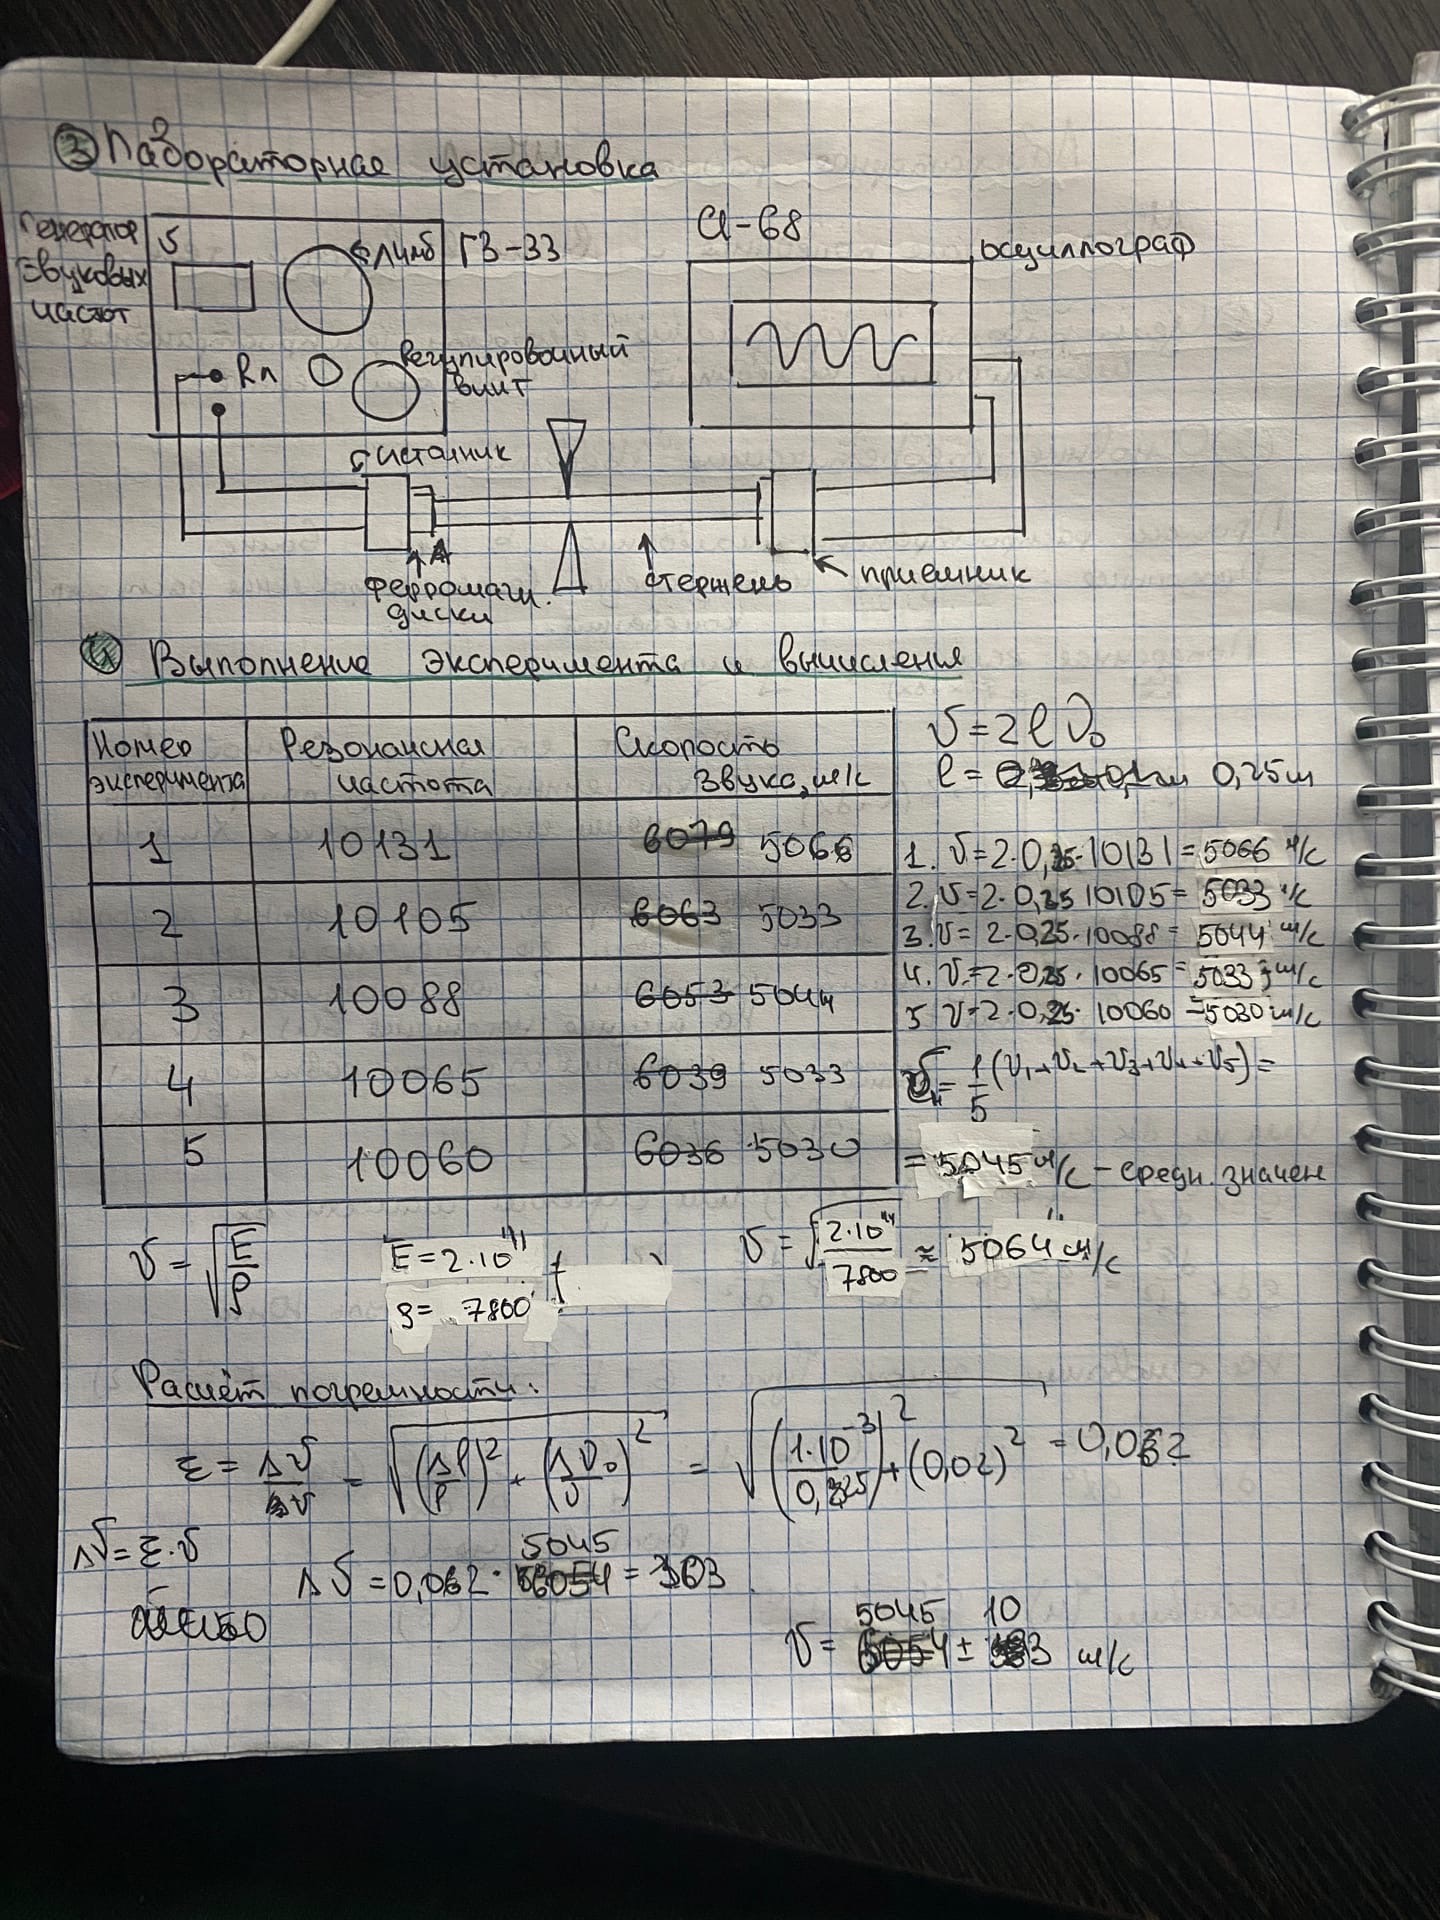 ③ Лабораторная установка
Генератор звуковых частот
лимб
ГЗ-33
С1-68
осциллограф
Rн
Регулировочный винт
источник
ферромагн. диски
стержень
приёмник
④ Выполнение эксперимента и вычисления
Номер эксперимента | Резонансная частота | Скорость звука, м/с
1 | 10131 | 6079 5066
2 | 10105 | 6063 5033
3 | 10088 | 6053 5044
4 | 10065 | 6039 5033
5 | 10060 | 6036 5030
v = 2lν₀
l = 0,25м
1. v = 2·0,25·10131 = 5066 м/с
2. v = 2·0,25 10105 = 5033 м/с
3. v = 2·0,25·10088 = 5044 м/с
4. v = 2·0,25·10065 = 5033 м/с
5 v = 2·0,25·10060 = 5030 м/с
= 1/5 (v₁+v₂+v₃+v₄+v₅) =
= 5045 м/с – средн. значен
v = √(E/ρ)
E = 2·10¹¹
ρ = 7800
v = √(2·10¹¹/7800) ≈ 5064 м/с
Расчёт погрешности:
ε = Δv/v = √((Δl/l)² + (Δν₀/ν)²) = √((1·10⁻³/0,25)² + (0,02)²) =
Δv = ε·v
Δv = 0,062 · 5045 6054 =
v = 5045 6054 ± 10 м/с